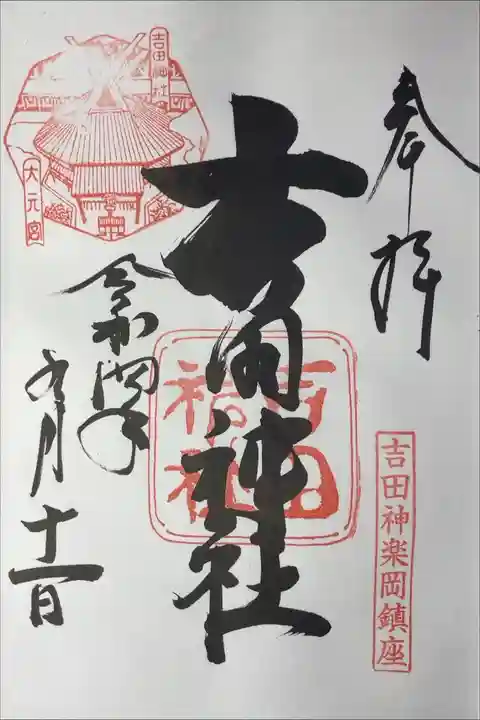 奉拝
吉田神楽岡鎮座
吉田神社
吉田神社
吉田神社
大元宮
令和四年
九月
十一日